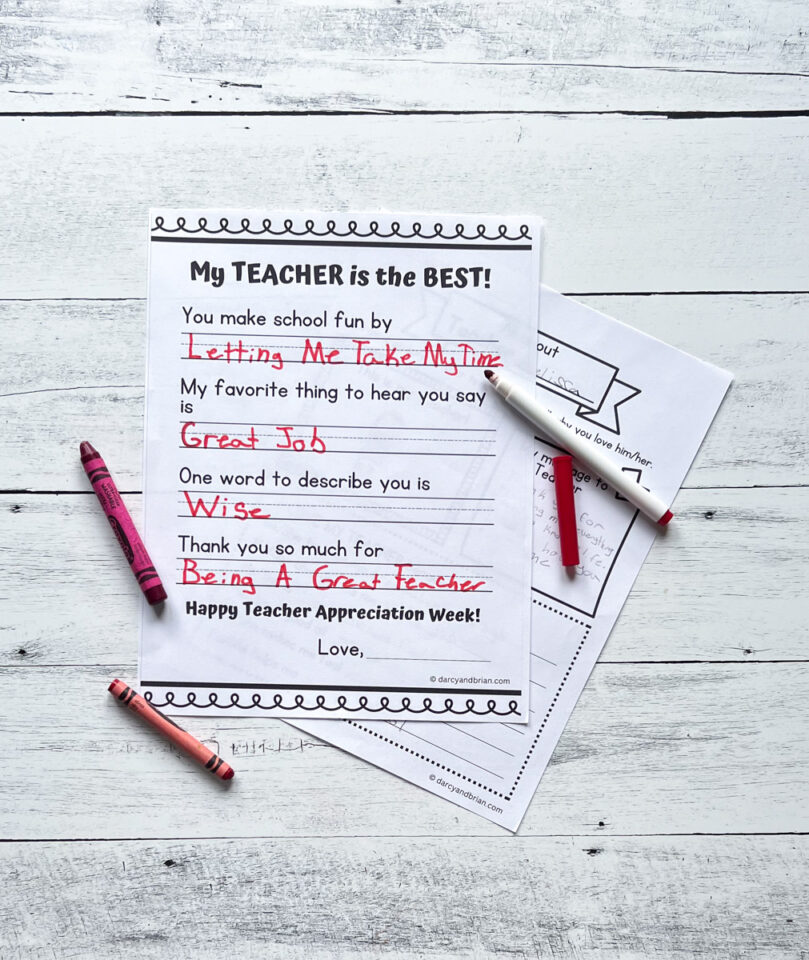 My TEACHER is the BEST!
You make school fun by
Letting Me Take My Time
My favorite thing to hear you say
is
Great Job
One word to describe you is
Wise
Thank you so much for
Being A Great Teacher
Happy Teacher Appreciation Week!
Love,
© darcyandbrian.com
out
by you love him/her.
to
Teacher
for
everything
life.
© darcyandbrian.com